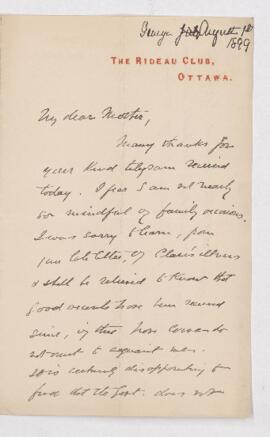 George July August 1st
1899
THE RIDEAU CLUB,
OTTAWA.
My dear Mother,
Many thanks for
your kind telegram received
today. I fear I am not nearly
so mindful of family occasions.
I was sorry to learn, from
your late letter, of Clare's illness
& shall be relieved to know that
good accounts have been received
since, if they have
not omit to acquaint me.
It is certainly disappointing to
find that the Govt. does not